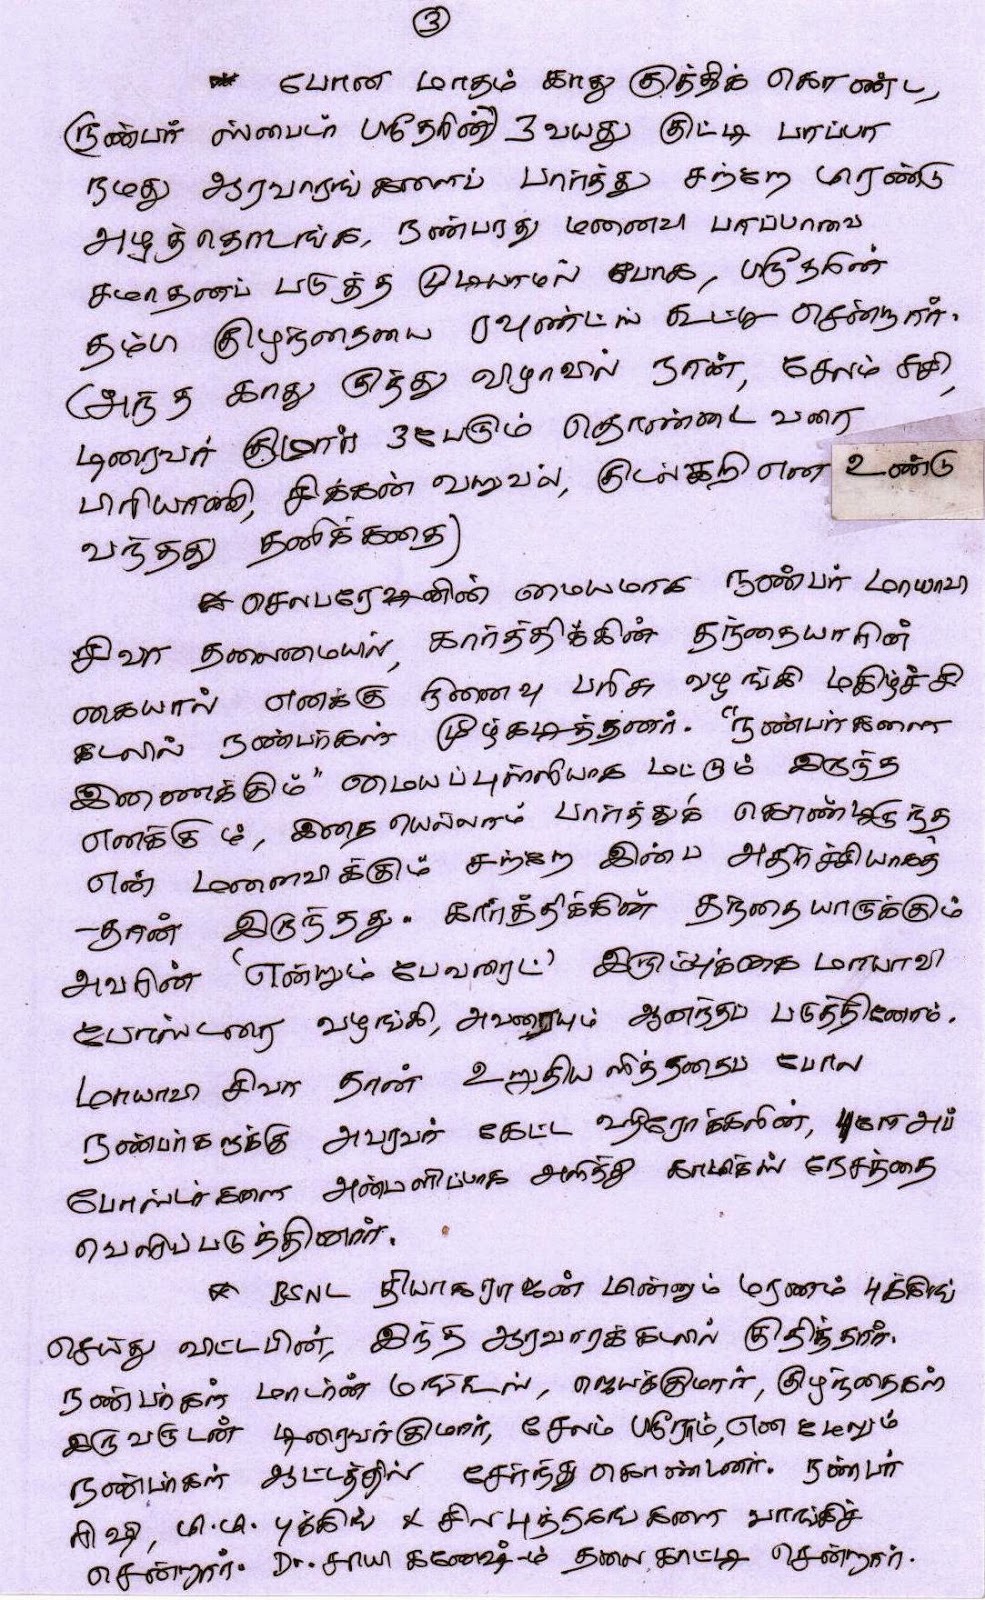 3
* போன மாதம் காது குத்திக் கொண்ட,
(நண்பர் ஸ்பைடர் ஸ்ரீதரின்) 3 வயது குட்டி பாப்பா
நமது ஆரவாரங்களைப் பார்த்து சற்றே மிரண்டு
அழத்தொடங்க, நண்பரது மனைவி பாப்பாவை
சமாதனப் படுத்த முடியாமல் போக, ஸ்ரீதரின்
தம்பி குழந்தையை ரவுண்ட்ஸ் கூட்டி சென்றார்.
(அந்த காது குத்து விழாவில் நான், சேலம் சசி,
டிரைவர் குமார் 3பேரும் தொண்டை வரை
பிரியாணி, சிக்கன் வறுவல், குடல்கறி என உண்டு
வந்தது தனிக்கதை)
* செலபரேஷனின் மையமாக நண்பர் மாயாவி
சிவா தலைமையில், கார்த்திக்கின் தந்தையாரின்
கையால் எனக்கு நினைவு பரிசு வழங்கி மகிழ்ச்சி
கடலில் நண்பர்கள் மூழ்கடித்தனர். "நண்பர்களை
இணைக்கும்" மையப்புள்ளியாக மட்டும் இருந்த
எனக்கும், இதையெல்லாம் பார்த்துக் கொண்டிருந்த
என் மனைவிக்கும் சற்றே இன்ப அதிர்ச்சியாகத்
-தான் இருந்தது. கார்த்திக்கின் தந்தையாருக்கும்
அவரின் 'என்றும் பேவரைட்' இரும்புக்கை மாயாவி
போஸ்டரை வழங்கி, அவரையும் ஆனந்தப் படுத்தினோம்.
மாயாவி சிவா தான் உறுதியளித்ததைப் போல
நண்பர்களுக்கு அவரவர் கேட்ட ஹீரோக்களின், புளோஅப்
போஸ்டர்களை அன்பளிப்பாக அளித்து காமிக்ஸ் நேசத்தை
வெளிப்படுத்தினார்.
* BSNL தியாகராஜன் மின்னும் மரணம் புக்கிங்
செய்து விட்டபின், இந்த ஆரவாரக்கடலில் குதித்தார்.
நண்பர்கள் மாடர்ன் ஜெயக்குமார், குழந்தைகள்
இருவருடன் டிரைவர்குமார், சேலம் ஸ்ரீராம், என மேலும்
நண்பர்கள் ஆட்டத்தில் சேர்ந்து கொண்டனர். நண்பர்
ரிஷி, மி.ம. புக்கிங் & சில புத்தகங்களை வாங்கிச்
சென்றார். Dr. சாய கணேஷ்-ம் தலைகாட்டி சென்றார்.